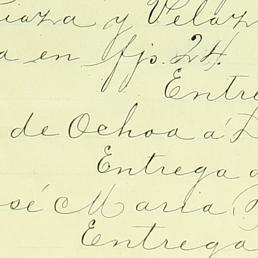 y Velaz
a en fjs. 24.
Entre
de Ochoa á
Entrega
osé Maria
Entrega